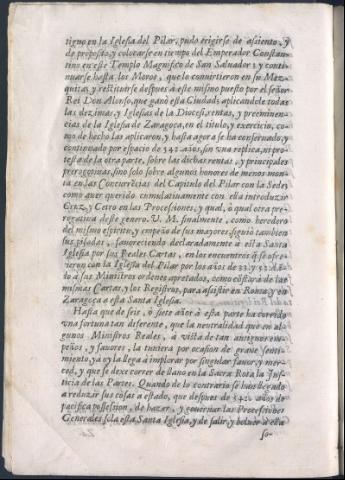 tiguo en la Iglesia del Pilar, pudo erigirse de assiento, y
de proposito, y colocarse en tiempo del Emperador Constan-
tino en este Templo Magnifico de San Salvador; y conti-
nuarse hasta los Moros, que lo convirtieron en su Mez-
quita, y restituirse despues à este mismo puesto por el señor
Rey Don Alonso, que ganò esta Ciudad; aplicandole todas
las dezimas, y Iglesias de la Diocesi, rentas, y preeminen-
cias de la Iglesia de Zaragoça, en el titulo, y exercicio, co-
mo de hecho las aplicaron, y hasta aora se ha conservado, y
continuado por espacio de 542 años, sin una replica, ni pro-
testa de la otra parte, sobre las dichas rentas, y principales
prerogativas, sino solo sobre algunos honores de menos mon-
ta en las Concurrẽcias del Capitulo del Pilar con la Sede;
como aver querido cumulativamente con ella introduzir
Cruz, y Cetro en las Processiones, y qual, ò qual otra pre-
rogativa deste genero. V. M. finalmente, como heredero
del mismo espiritu, y empeño de sus mayores, siguiò tambien
sus pisadas, favoreciendo declaradamente à esta Santa
Iglesia por sus Reales Cartas, en los encuentros q̃ se ofre-
cieron con la Iglesia del Pilar por los años de 31. y 32. dã-
do à sus Ministros ordenes apretados, como cõstarà de las
mismas Cartas, y los Registros, para assistir en Roma, y en
Zaragoça à esta Santa Iglesia.
Hasta que de seis, ò siete años à esta parte ha corrido
una fortuna tan diferente, que la neutralidad que en al-
gunos Ministros Reales, à vista de tan antiguos em-
peños, y favores, la tuviera por ocasion de grave senti-
miento, ya oy la llega à implorar por singular favor, y mer-
ced, y que se dexe correr de llano en la Sacra Rota la Jus-
ticia de las Partes. Quando de lo contrario se has llegado
à reduzir sus cosas à estado, que despues de 542. años de
pacifica possession, de hazer, y governar las Processiones
Generales sola esta Santa Iglesia, y de salir, y bolver à ella
so-